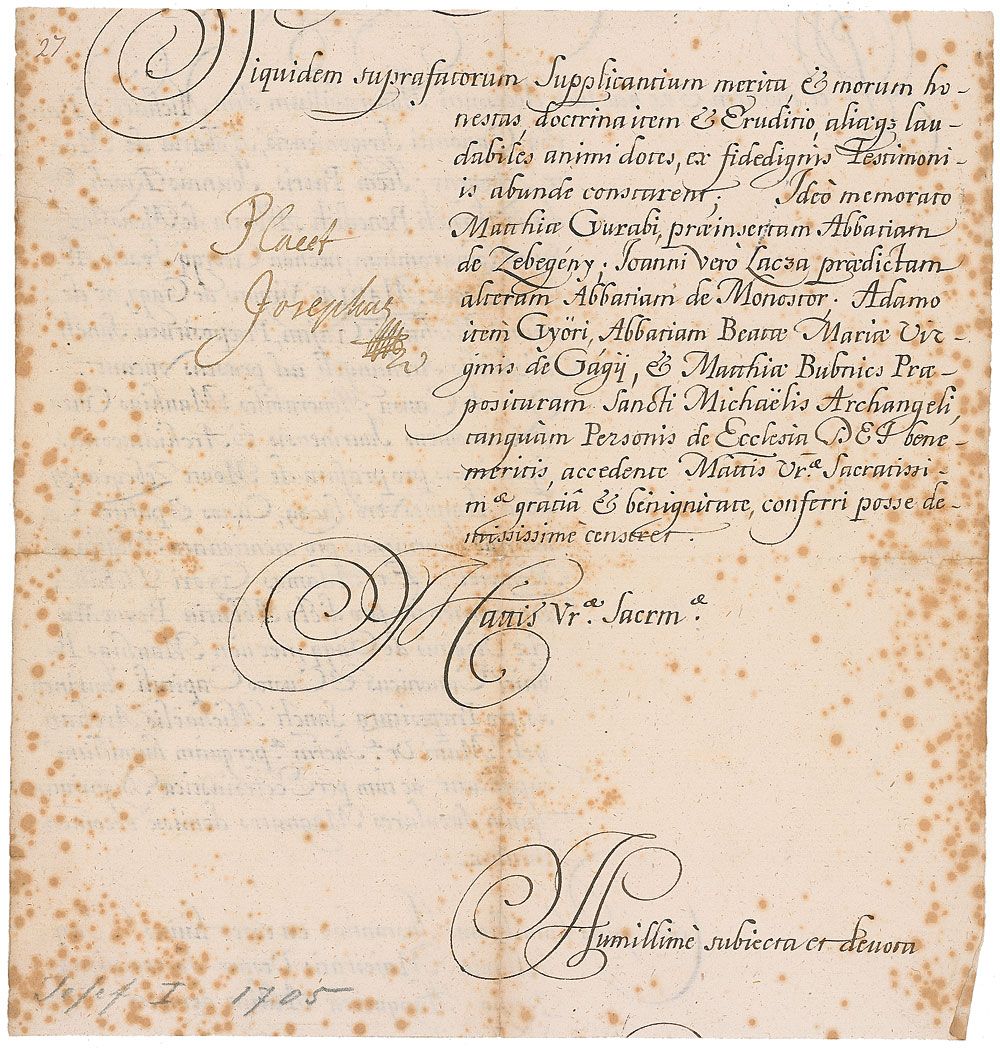 27
Siquidem suprafatorum Supplicantium merita, & morum ho-
nestas, doctrina item & Eruditio, aliæq; lau-
dabiles animi dotes, ex fidedignis Testimoni-
is abunde constarent; Ideò memorato
Matthiæ Gurabi, præinsertam Abbatiam
de Zebegény; Ioanni verò Lacza prædictam
alteram Abbatiam de Monostor; Adamo
item Györi, Abbatiam Beatæ Mariæ Vir-
ginis de Gágÿ, & Matthiæ Bubnics Præ-
posituram Sancti Michaëlis Archangeli,
tanquàm Personis de Ecclesia DEI bene-
meritis, accedente Mattis Vræ Sacratissi-
mæ gratiâ & benignitate, conferri posse de-
missisimè censeret.
Placet
Josephus
Mattis Vræ. Sacrmæ.
Humillimè subiecta et devota
Josef I 1705